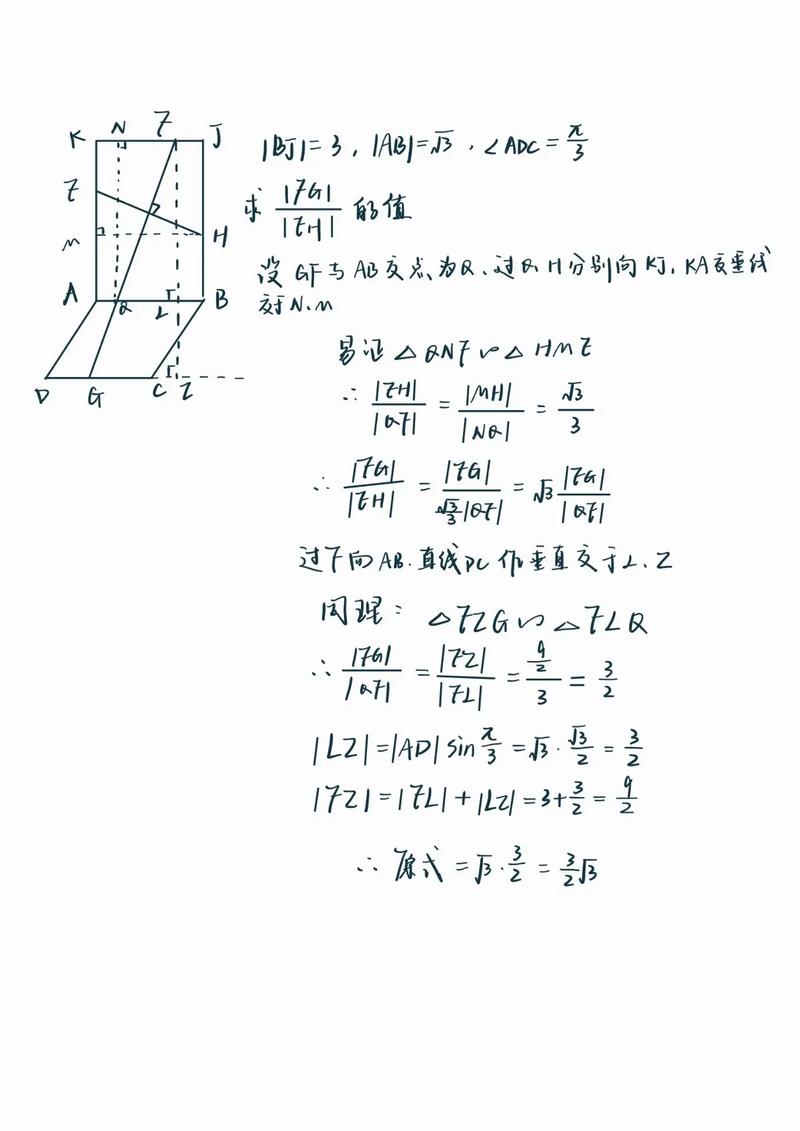 K N F J
E
M H
A Q L B
D G C Z
|BJ|=3, |AB|=√3, ∠ADC=π/3
求 |FG|/|EH| 的值
设 GF与AB交点为Q、过Q、H分别向KJ、KA交垂线
交于N、M
易证 △QNF∽△HME
∴ |EH|/|QF| = |MH|/|NQ| = √3/3
∴ |FG|/|EH| = |FG|/(√3/3|QF|) = √3 |FG|/|QF|
过F向AB、直线DC作垂直交于L、Z
同理: △FZG∽△FLQ
∴ |FG|/|QF| = |FZ|/|FL| = (9/2)/3 = 3/2
|LZ|=|AD|sin π/3 = √3·√3/2 = 3/2
|FZ|=|FL|+|LZ|=3+3/2=9/2
∴ 原式 = √3·3/2 = 3/2√3